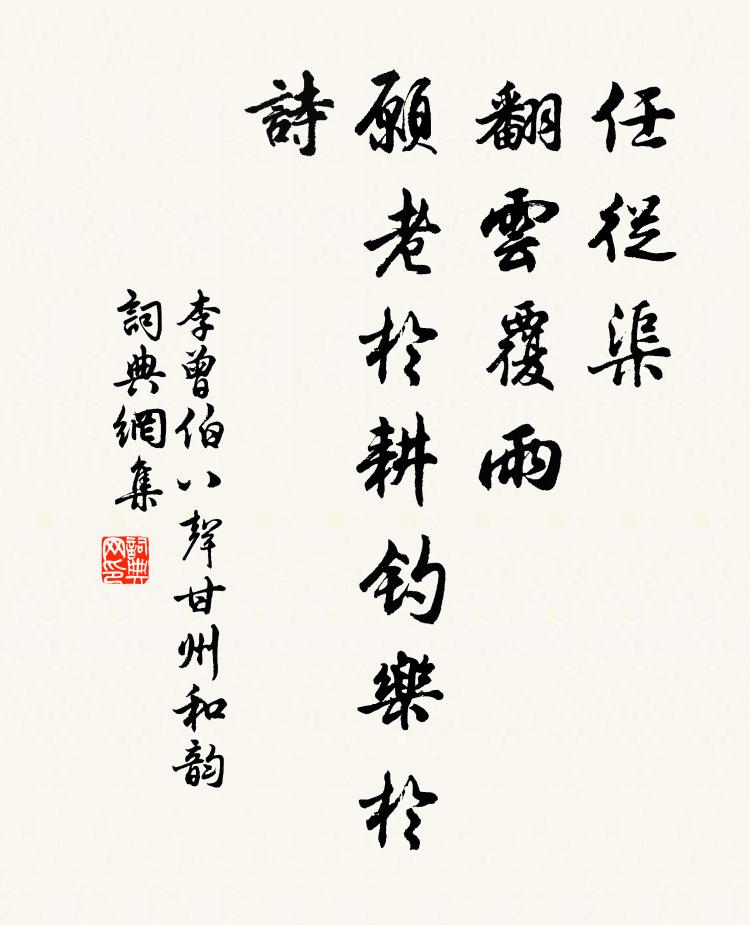 任從渠
翻雲覆雨
願老於耕釣樂於
詩
李曾伯八聲甘州和韵
詞典網集
詞典网印